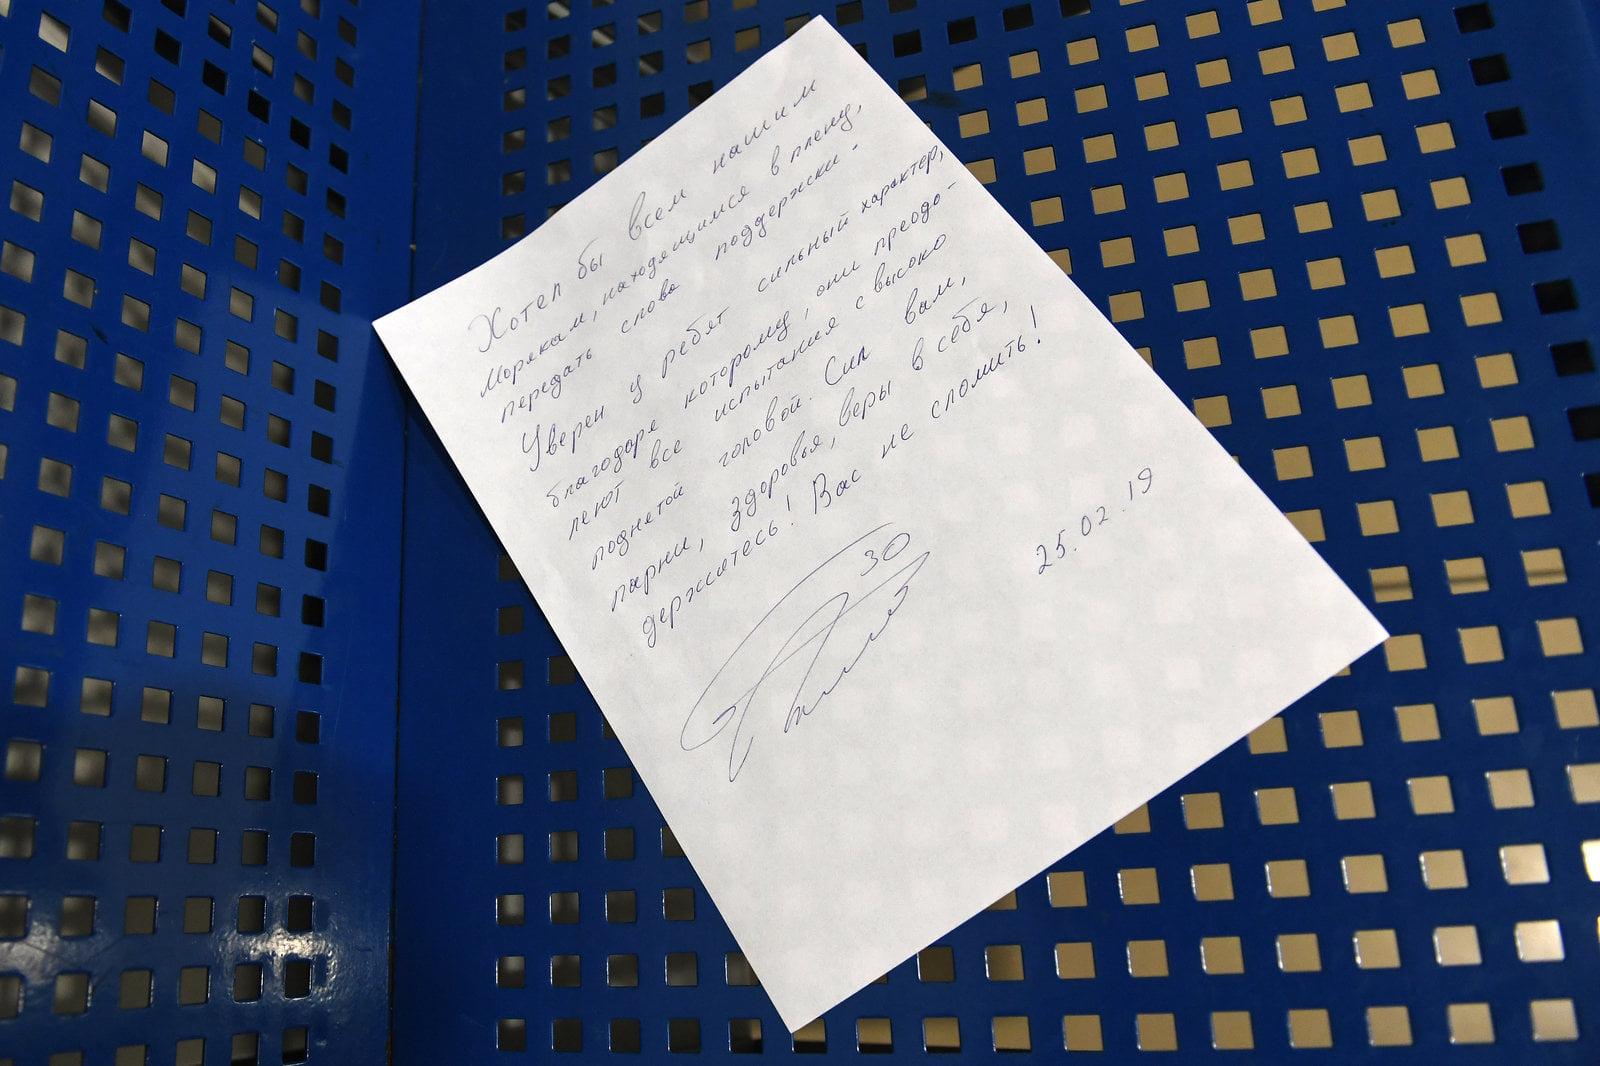 Хотел бы всем нашим
морякам, находящимся в плену,
передать слова поддержки.
Уверен у ребят сильный характер,
благодаря которому, они преодо-
леют все испытания с высоко
поднятой головой. Сил вам,
парни, здоровья, веры в себя,
держитесь! Вас не сломить!
30
25.02.19